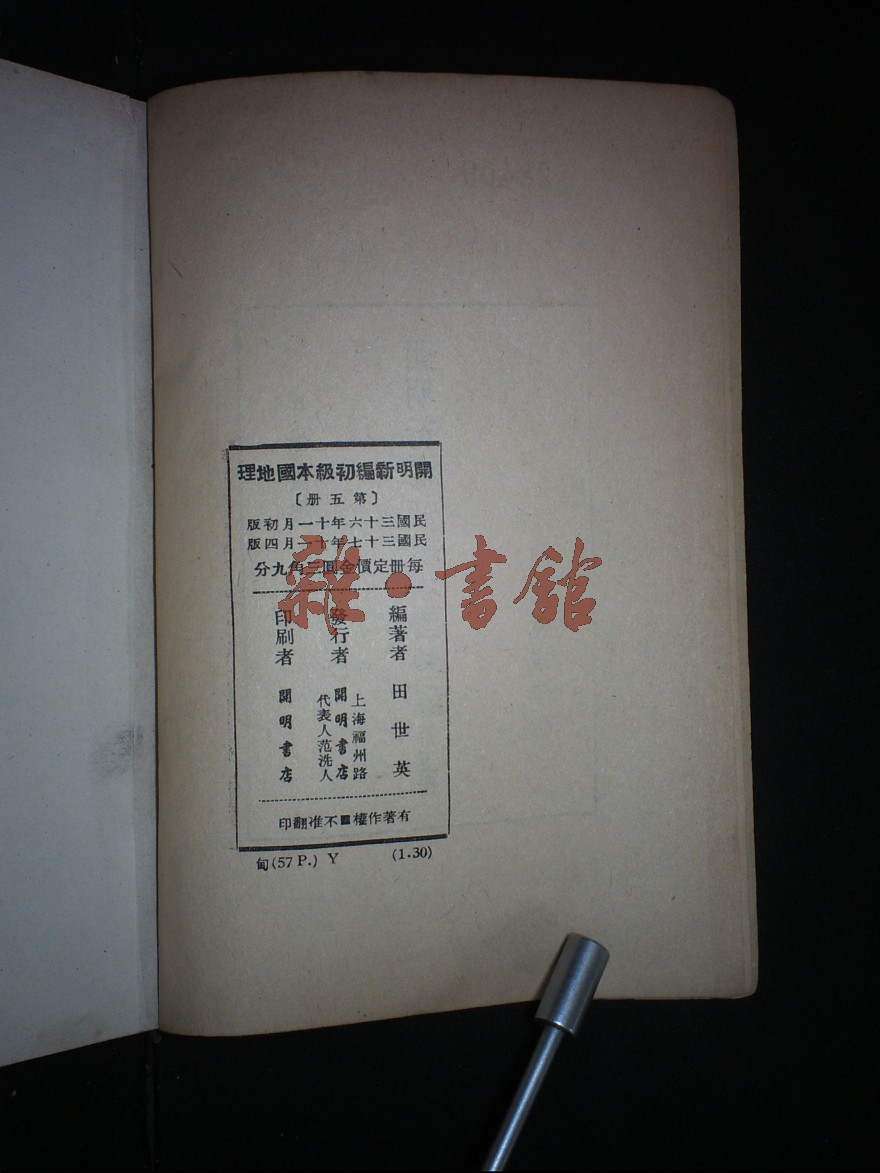 開明新編初級本國地理
〔第五册〕
民國三十六年十一月初版
民國三十七年十一月四版
每册定價金圓三角九分
編著者 田世英
發行者 上海福州路
開明書店
代表人范洗人
印刷者 開明書店
有著作權■不准翻印
(1.30)
甸(57 P.) Y
雜·書館